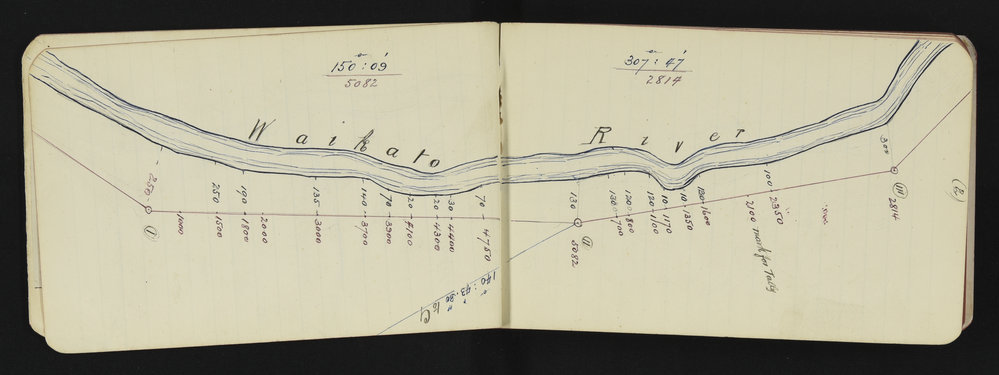 150° : 09'
5082
307° : 47'
2814
Waikato River
250
1000
250 - 1500
190 - 1800
2000
135 - 3000
140 - 3700
70 - 3900
120 - 4100
20 - 4300
30 - 4400
70 - 4750
130
II
5082
130 - 700
120 - 800
120 - 1100
10 - 1170
10 - 1350
130 - 1600
100 - 2350
2100 mark for Trav
300
III
2814
I
(2)